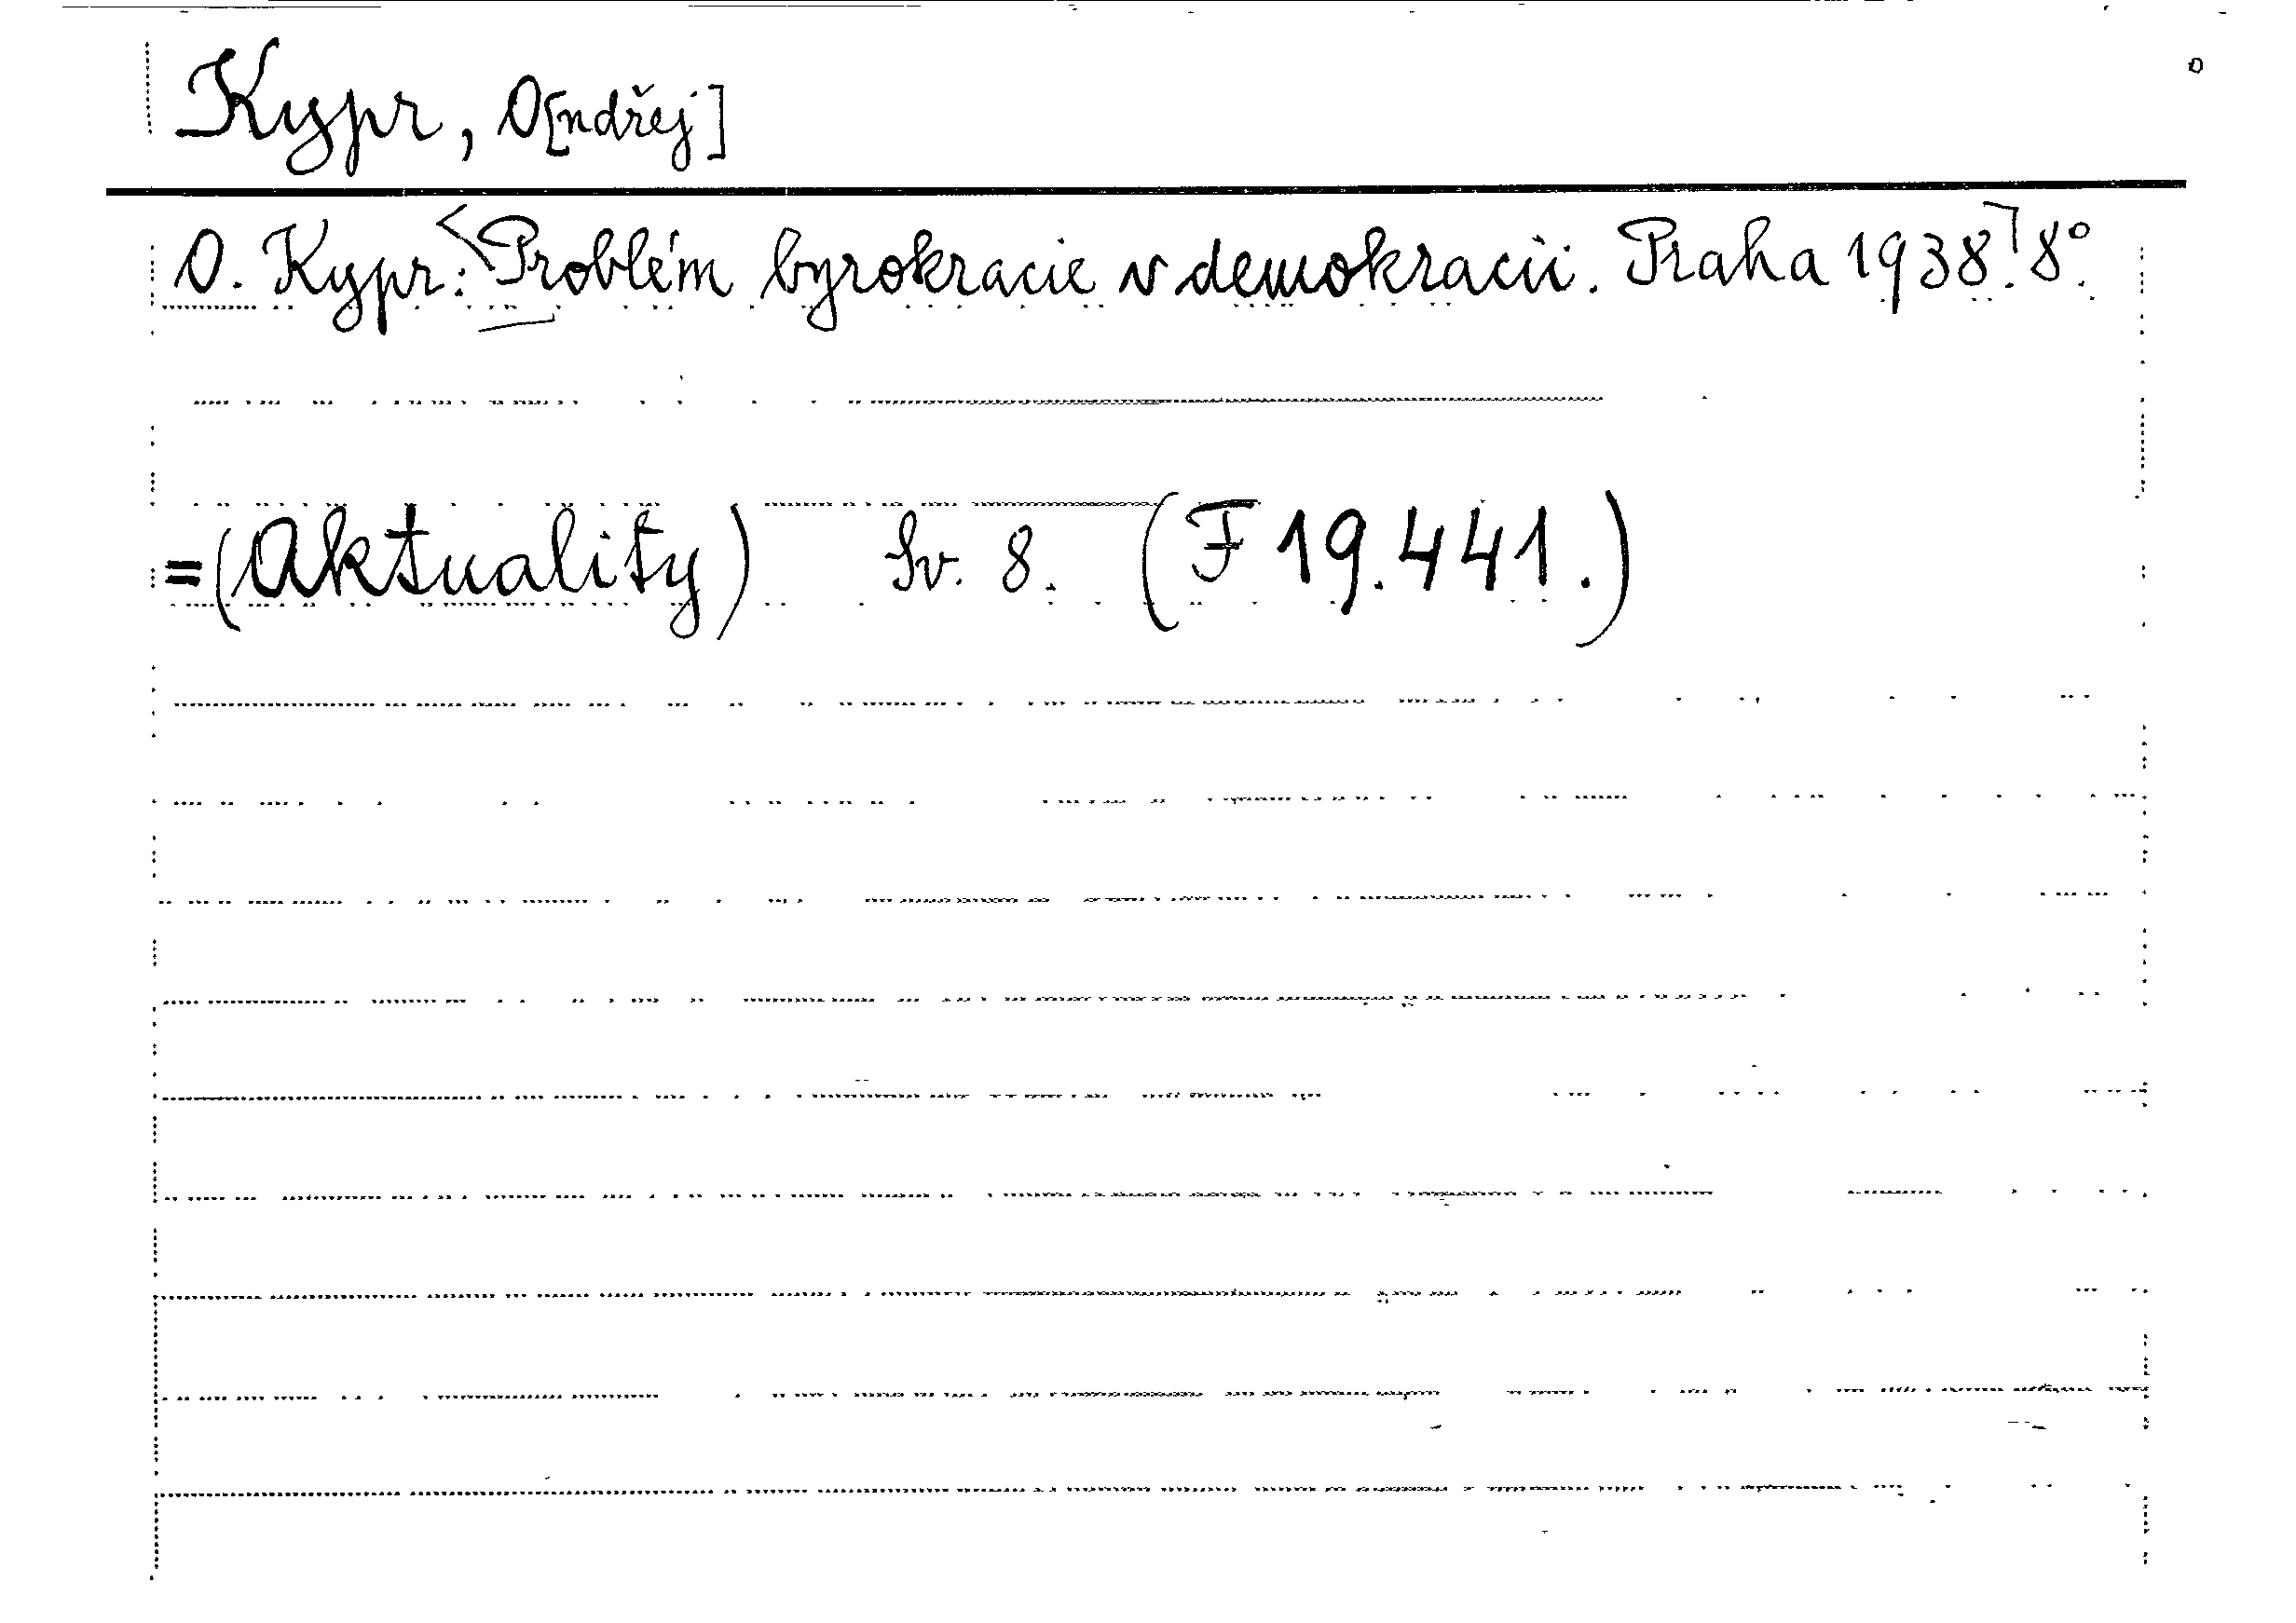 Kypr, O[ndřej]
O. Kypr: Problém byrokracie v demokracii. Praha 1938. 8°.
=(Aktuality) Sv. 8. (F 19.441.)